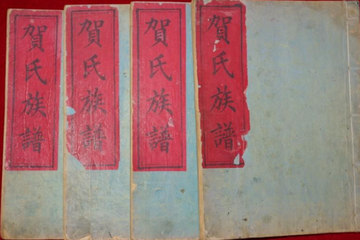 賀氏族譜
賀氏族譜
賀氏族譜
賀氏族譜